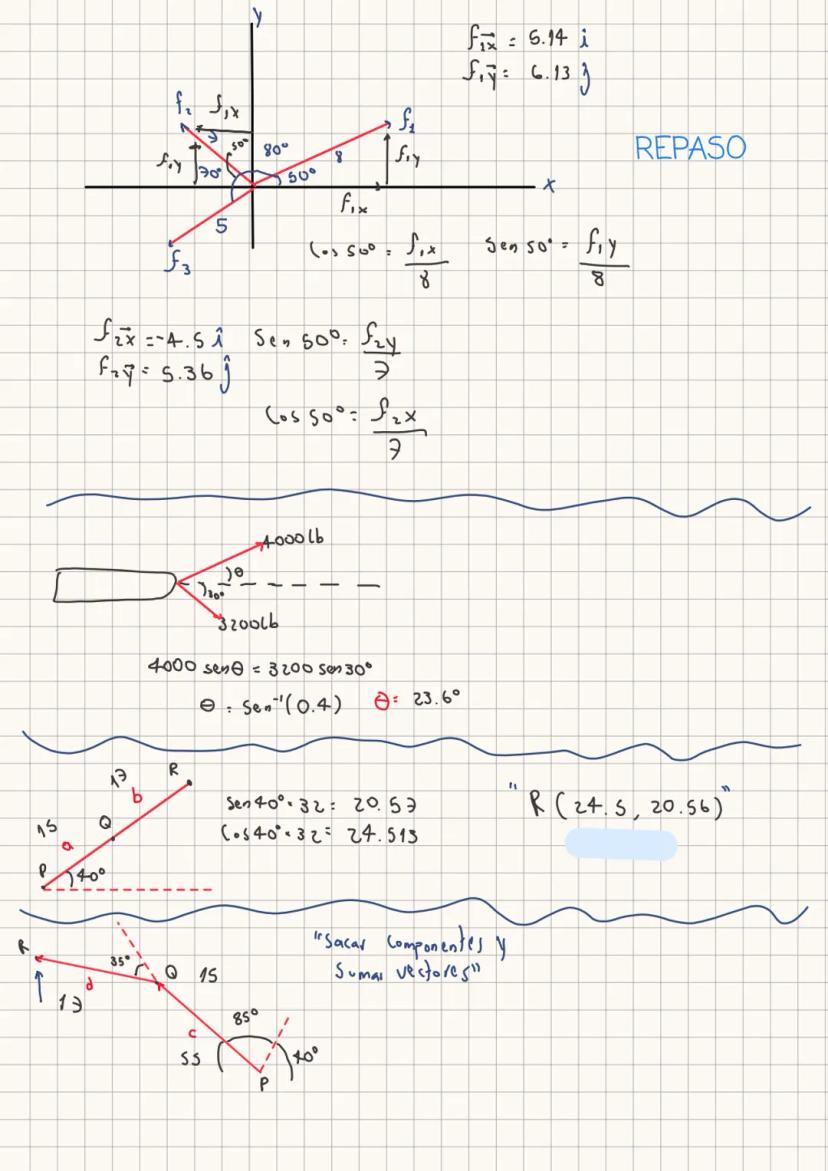 y
f₁x⃗ = 5.14 i
f₁y⃗ = 6.13 j
REPASO
f₂ f₁x f₁
7 50° 80° 8
f₁y 70° 50° f₁y
x
f₁x
5
f₃
Cos 50° = f₁x/8 Sen 50° = f₁y/8
f₂x⃗ = -4.5 î Sen 50° = f₂y/7
f₂y⃗ = 5.36 ĵ
Cos 50° = f₂x/7
4000 lb
θ
30°
3200 lb
4000 senθ = 3200 sen 30°
θ = Sen⁻¹(0.4) θ = 23.6°
17 R
b
15 Q
a
P 40°
sen 40° · 32 = 20.57
Cos 40° · 32 = 24.513
" R (24.5, 20.56)"
"Sacar componentes y
Sumar vectores"
R
35° Q 15
d
17
85°
c
55 40°
P